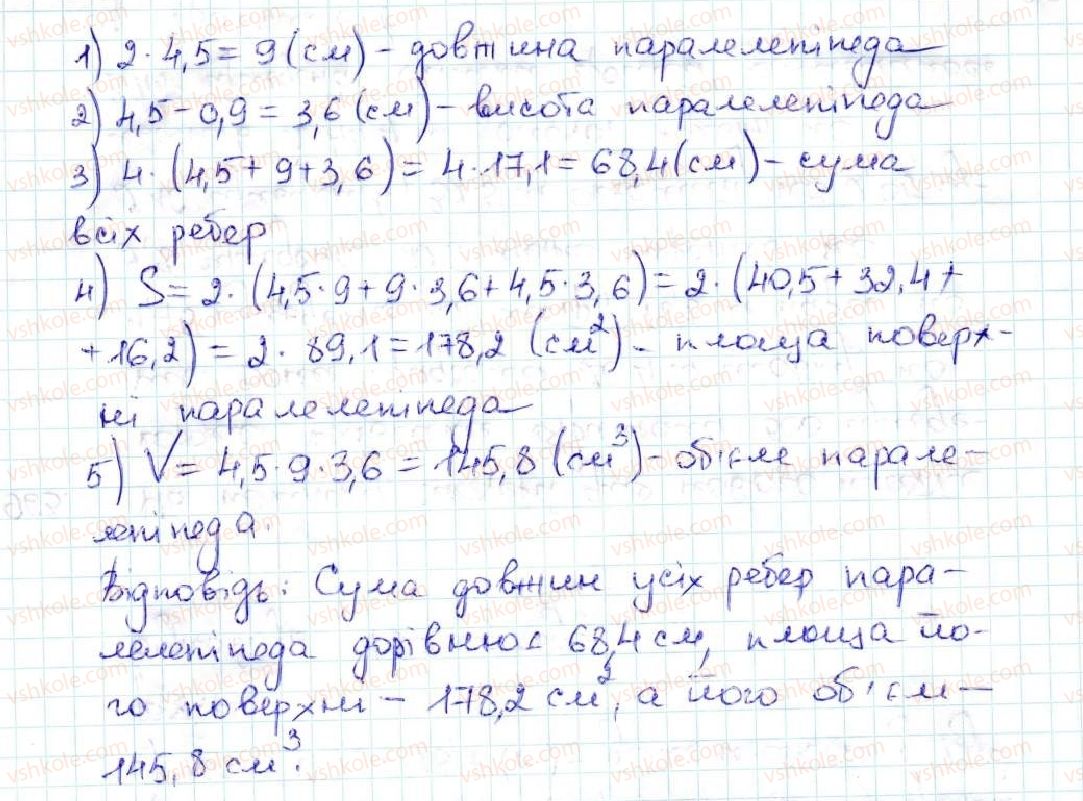 1) 2 · 4,5 = 9 (см) - довжина паралелепіпеда
2) 4,5 - 0,9 = 3,6 (см) - висота паралелепіпеда
3) 4 · (4,5 + 9 + 3,6) = 4 · 17,1 = 68,4 (см) - сума
всіх ребер
4) S = 2 · (4,5 · 9 + 9 · 3,6 + 4,5 · 3,6) = 2 · (40,5 + 32,4 +
+ 16,2) = 2 · 89,1 = 178,2 (см²) - площа поверх-
ні паралелепіпеда
5) V = 4,5 · 9 · 3,6 = 145,8 (см³) - об'єм парале-
лепіпеда.
Відповідь: Сума довжин усіх ребер пара-
лелепіпеда дорівнює 68,4 см, площа йо-
го поверхні - 178,2 см², а його об'єм -
145,8 см³.
vshkole.com